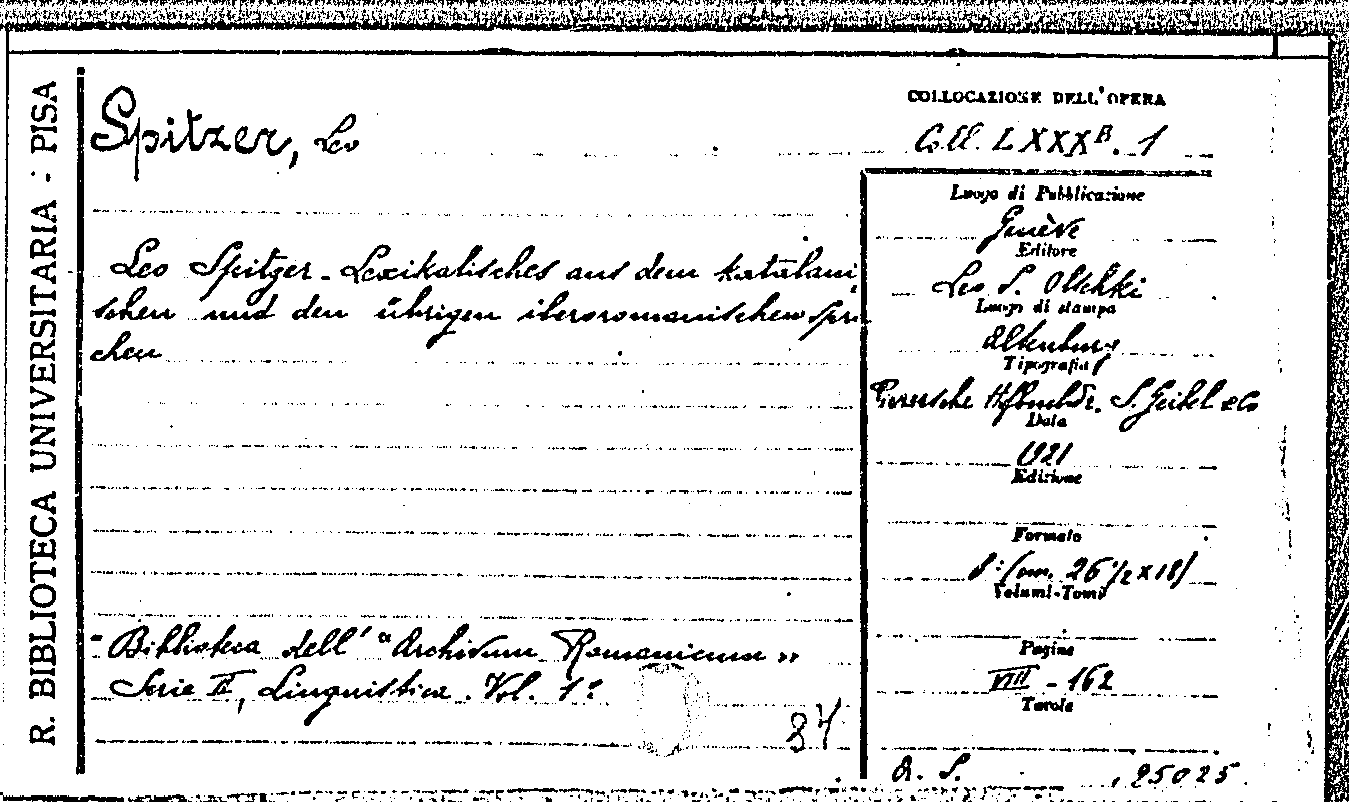 R. BIBLIOTECA UNIVERSITARIA - PISA
Spitzer, Leo
Leo Spitzer - Lexikalisches aus dem katalani
schen und den übrigen iberoromanischen Spra
chen
- Biblioteca dell' "Archivum Romanicum"
Serie II, Linguistica. Vol. 1º
84
COLLOCAZIONE DELL'OPERA
Coll. LXXXB. 1
Luogo di Pubblicazione
Genève
Editore
Leo S. Olschki
Luogo di stampa
Altenburg
Tipografia
Pierersche Hofbuchdr. S. Geibel e Co
Data
1921
Edizione
Formato
8º (cm. 26 1/2 x 18)
Volumi-Tomi
Pagine
VIII - 162
Tavole
A. S. 25025